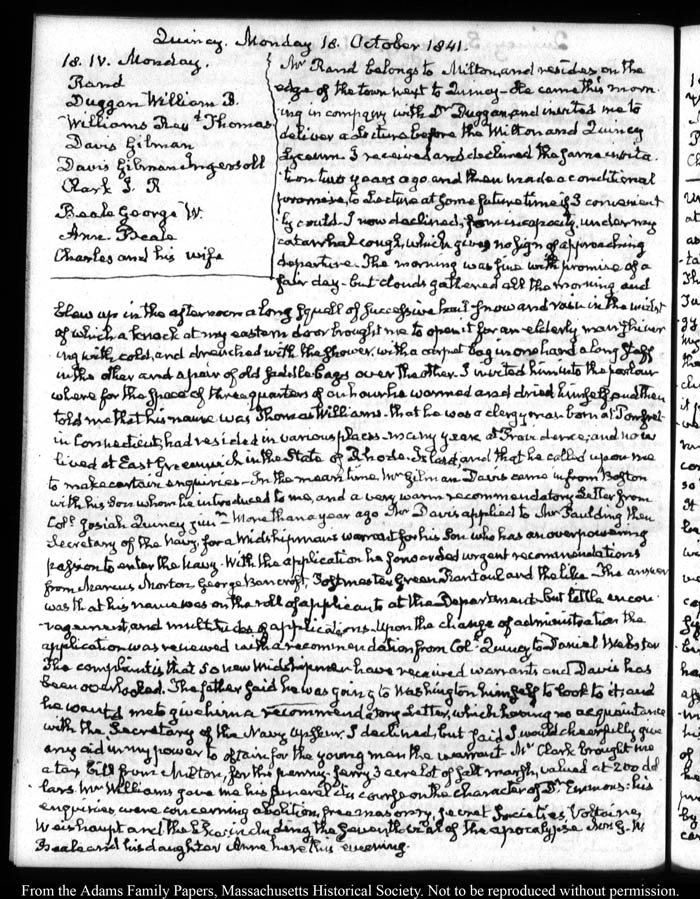 Quincy. Monday 18. October 1841.
18. IV. Monday.
Rand
Duggan William B.
Williams Revd Thomas
Davis Gilman
Davis Gilman Ingersoll
Clark J. R
Beale George W.
Anne Beale
Charles and his wife
Mr Rand belongs to Milton, and resides on the
edge of the town next to Quincy. He came this morn
ing in company with Dr Duggan, and invited me to
deliver a Lecture before the Milton and Quincy
Lyceum. I received and declined the same invita-
tion two years ago, and then made a conditional
promise, to Lecture at some future time if I convenient
ly could. I now declined, from incapacity, under my
catarrhal cough, which gives no sign of approaching
departure. The morning was fine with promise of a
fair day- but clouds gathered all the morning and
blew up in the afternoon a long squall of successive hail snow and rain in the midst
of which a knock at my eastern door brought me to open it for an elderly man shiver
ing with cold, and drenched with the shower, with a carpet bag in one hand a long staff
in the other and a pair of old saddle bags over the other. I invited him into the parlour
where for the space of three quarters of an hour he warmed and dried himself and then
told me that his name was Thomas Williams- that he was a clergyman born at Pomfret
in Connecticut, had resided in various places- many years at Providence, and now
lived at East Greenwich in the State of Rhode-Island, and that he called upon me
to make certain enquiries- In the mean time, Mr Gilman Davis came in from Boston
with his Son whom he introduced to me, and a very warm recommendatory Letter from
Coll Josiah Quincy junr More than a year ago Mr Davis applied to Mr Paulding then
Secretary of the Navy, for a Midshipman's warrant for his Son who has an overpowering
passion to enter the Navy. With the application he forwarded urgent recommendations
from Marcus Morton, George Bancroft, Postmaster Green, Rantoul and the like- The answer
was that his name was on the roll of applicants at the Department- but little encou
-ragement, and multitudes of applications. Upon the change of administration the
application was renewed with a recommendation from Coll Quincy to Daniel Webster
The complaint is that 50 new Midshipmen have received warrants and Davis has
been overlooked. The father said he was going to Washington himself to look to it; and
he wanted me to give him a recommendatory Letter, which having no acquaintance
with the Secretary of the Navy Upshur, I declined, but said I would cheerfully give
any aid in my power to obtain for the young man the warrant. Mr Clark brought me
a tax bill from Milton, for the penny-ferry 3 acre lot of salt marsh, valued at 200 dol
lars. Mr Williams gave me his funeral discourse on the character of Dr Emmons: his
enquiries were concerning abolition, free masonry, secret Societies, Voltaire,
Weishaupt and the including the seventh vial of the apocalypse Mr G. W
Beale and his daughter Anne here this evening.
From the Adams Family Papers, Massachusetts Historical Society. Not to be reproduced without permission.